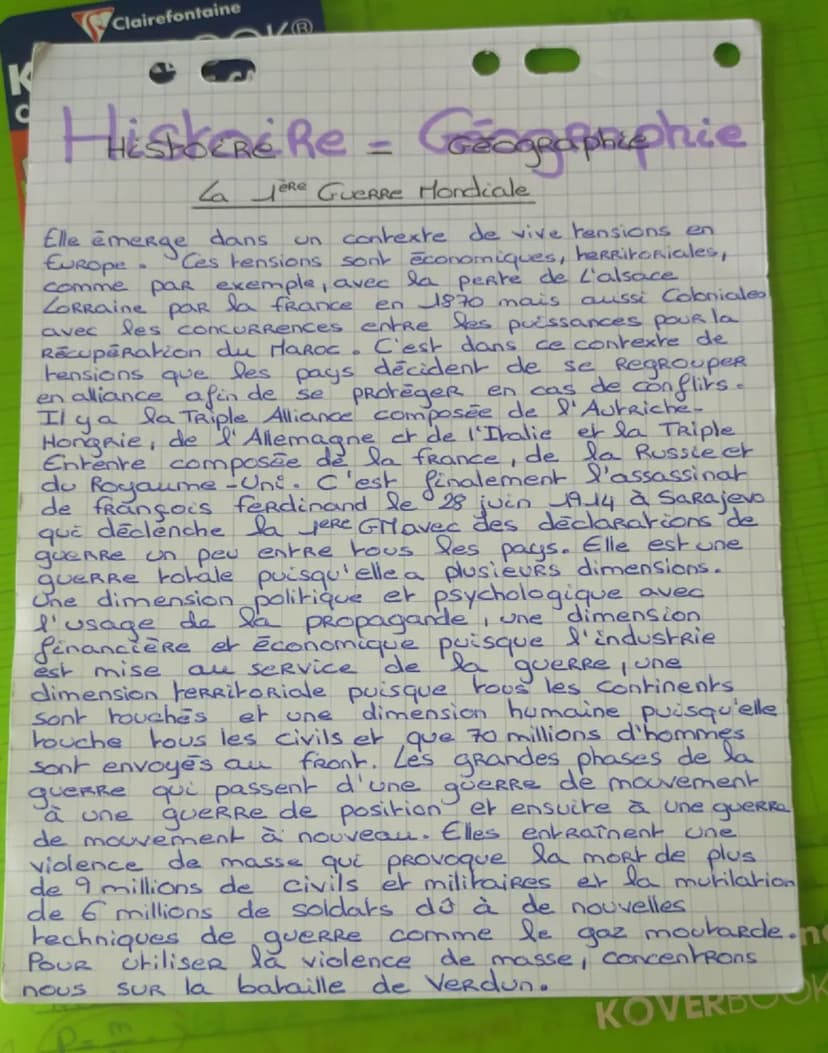 Clairefontaine
K
Histoire = Géographie
Histoire Géographie
La 1ère Guerre Mondiale
Elle émerge dans un contexte de vive tensions en
Europe. Ces tensions sont économiques, territoriales,
comme par exemple, avec la perte de L'alsace
Lorraine par la france en 1870 mais aussi Coloniales
avec les concurrences entre les puissances pour la
Récupération du Maroc. C'est dans ce contexte de
tensions que les pays décident de se Regrouper
en alliance afin de se protéger en cas de conflits.
Il y a la Triple Alliance composée de l'Autriche-
Hongrie, de l'Allemagne et de l'Italie et la Triple
Entente composée de la france, de la Russie et
du Royaume-Uni. C'est finalement l'assassinat
de françois ferdinand le 28 juin 1914 à Sarajevo
qui déclenche la 1ere GM avec des déclarations de
guerre un peu entre tous les pays. Elle est une
guerre totale puisqu'elle a plusieurs dimensions.
Une dimension politique et psychologique avec
l'usage de la propagande, une dimension
financière et économique puisque l'industrie
est mise au service de la guerre, une
dimension territoriale puisque tous les continents
sont touchés et une dimension humaine puisqu'elle
touche tous les civils et que 70 millions d'hommes
sont envoyés au front. Les grandes phases de la
guerre qui passent d'une guerre de mouvement
à une guerre de position et ensuite à une guerre
de mouvement à nouveau. Elles entraînent une
violence de masse qui provoque la mort de plus
de 9 millions de civils et militaires et la mutilation
de 6 millions de soldats dû à de nouvelles
techniques de guerre comme le gaz moutarde.
Pour utiliser la violence de masse, concentrons
nous sur la bataille de Verdun.
KOVERBOOK